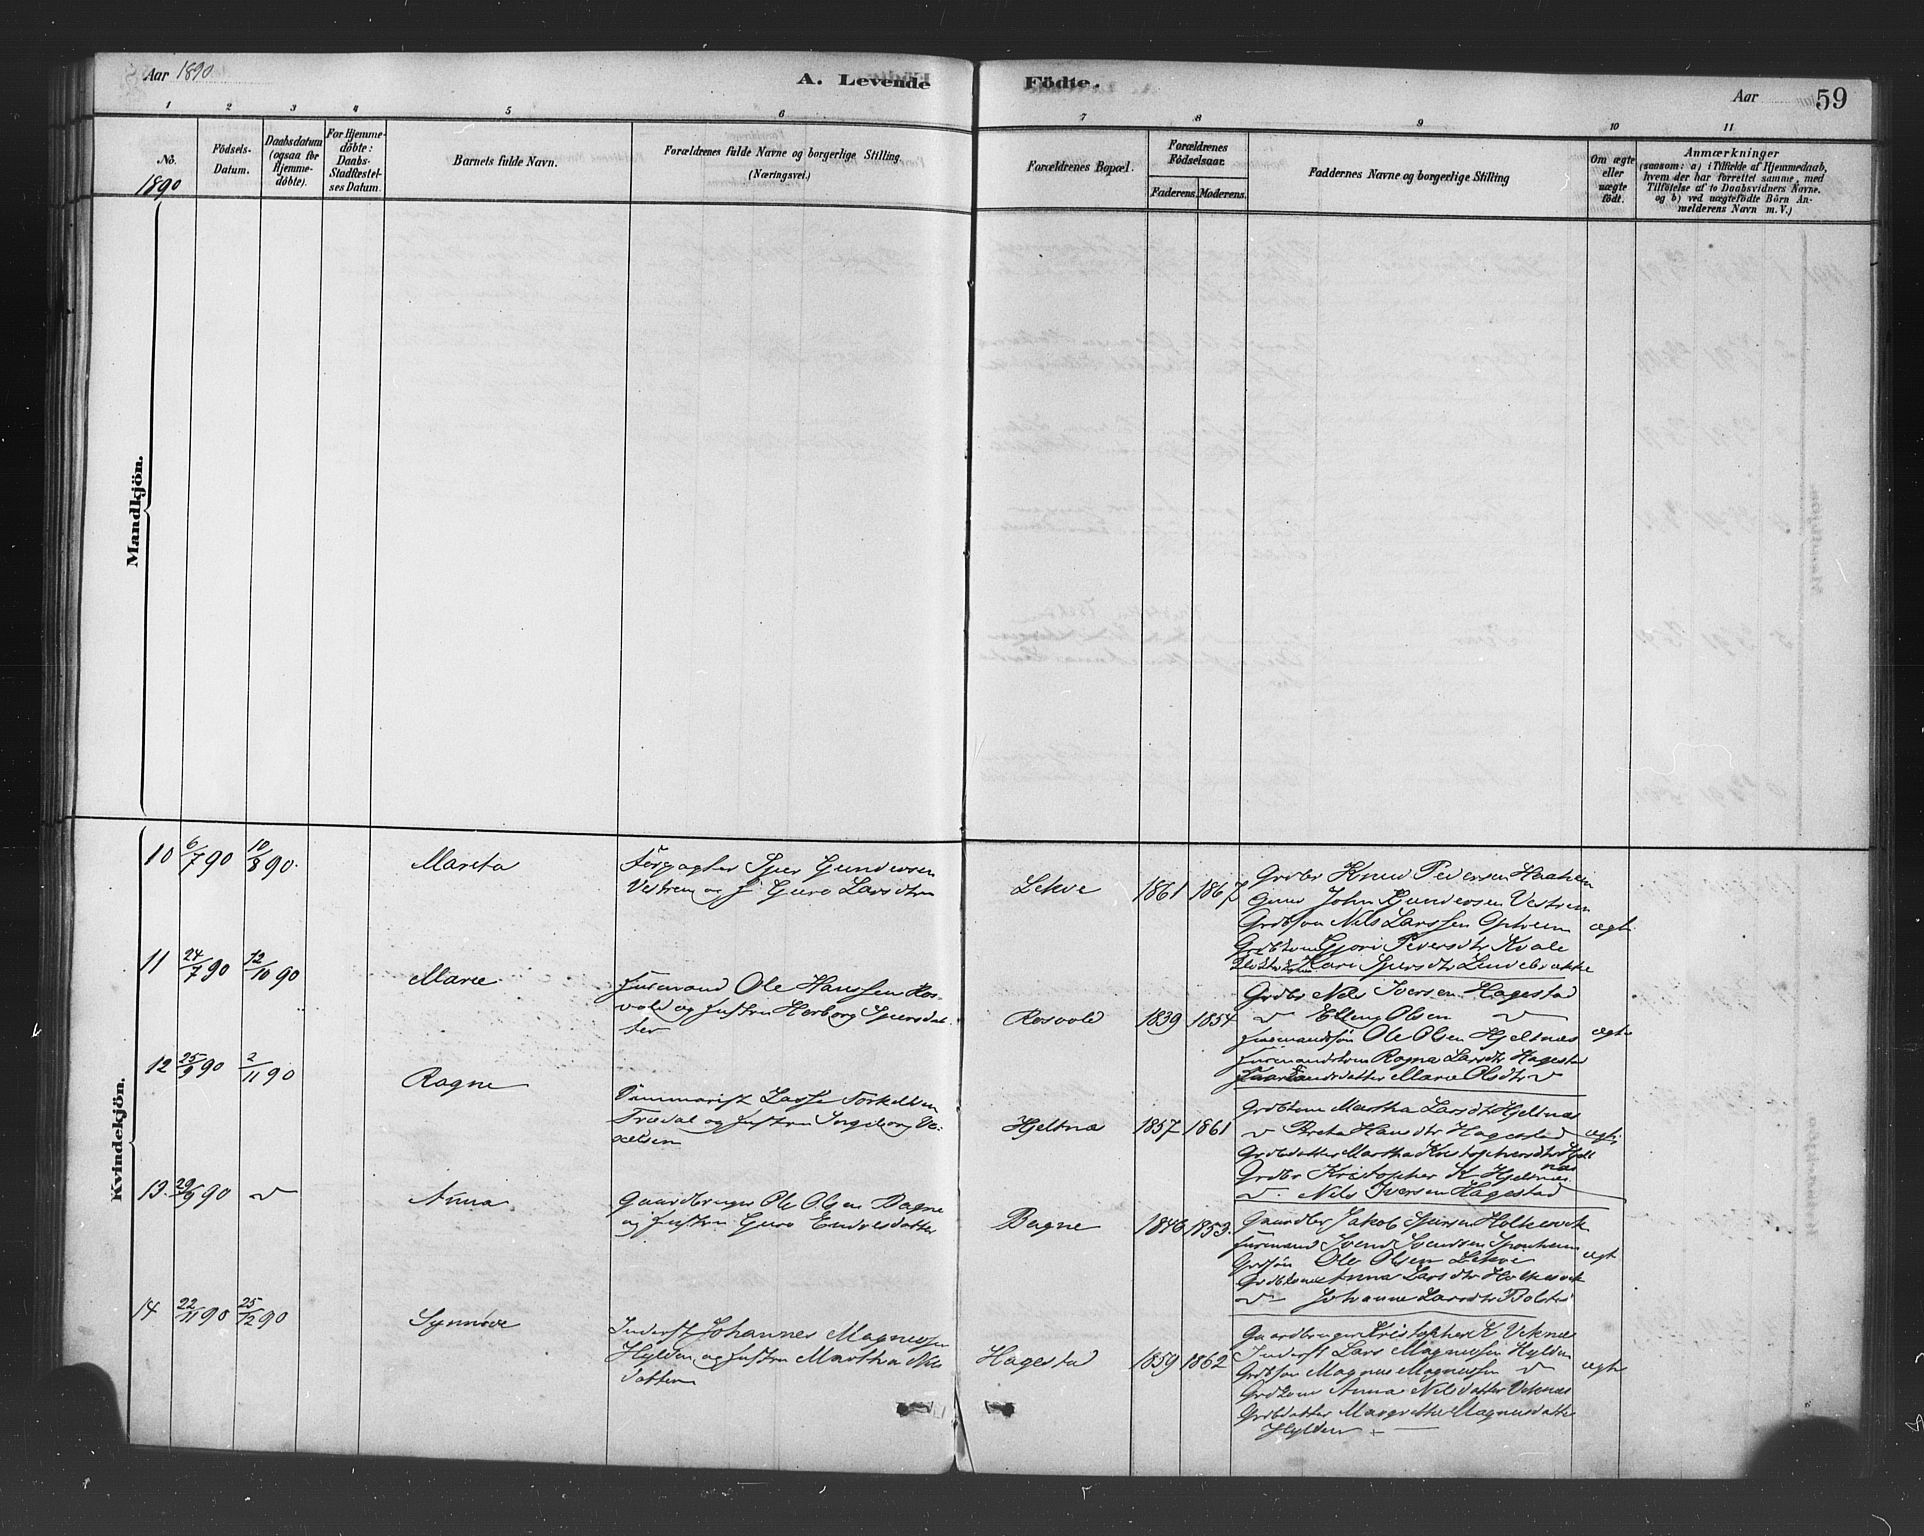 Aar 1890
A. Levende
Födte.
Aar
59
1 2 3 4 5 6 7 8 9 10 11
No.
1890
Födsels-
Datum.
Daabsdatum
(ogsaa for
Hjemme-
döbte).
For Hjemme-
döbte:
Daabs-
Stadfæstel-
ses Datum.
Barnets fulde Navn.
Forældrenes fulde Navne og borgerlige Stilling
(Næringsvei.)
Forældrenes Bopæl.
Forældrenes
Födselsaar.
Faderens. Moderens.
Faddernes Navne og borgerlige Stilling
Om ægte
eller
uægte
födt.
Anmærkninger
(saasom: a) i Tilfælde af Hjemmedaab,
hvem der har forrettet samme, med
Tilföielse af to Daabsvidners Navne.
og b) ved uægtefödte Börn An-
melderens Navn m. V.)
Mandkjön.
Kvindekjön.
10 6/7 90 10/8 90. Marita
Forpagter Sjur Gundersen
Vestrem og H. Guro Larsdtr
Lekve 1861 1867
Grdbr Knud Pedersen Haaheim
John Gundersen Vestrem
Grdbsøn Nils Larssen Opheim ægte
Grdbkone Gjøri Pedersdtr Kvale
Kari Sjursdtr Lindebrække
11 24/7 90 12/10 90 Marie
Husmand Ole Hanssen Ros-
vold og Hustru Herborg Sjursdat-
ter
Rosvold 1839 1854
Grdbr Nils Iversen Hagestad
v Elling Olsen v
Husmandssøn Ole Olsen Hjeltnæs ægte
Husmandskone Ragna Larsdtr Hagestad
Marie Olsdtr v
12 25/9 90 2/11 90 Ragne
Tømmermand Lars Torkelsen
Trædal og Hustru Ingeborg
Hjeltnæ 1857 1861
Grdbkone Martha Larsdtr Hjeltnæs
v Brita Hansdtr Hagestad ægte
Grdbdatter Martha Kristophersdtr Hjelt
næs
Grdbr Kristopher K Hjeltnæs.
v. Nils Iversen Hagestad
13. 29/9 90 v Anna
Gaardbruger Ole Olsen Bagne
og Hustru Guro Endresdatter
Bagne 1846 1853.
Gaardbr Jakob Sjursen Holkesvik
Husmand Svend Svendsen Sponheim
Grdsøn Ole Olsen Lekve ægte
Grdbkone Anna Larsdtr Holkesvik
v Johanne Larsdtr Bolstad
14 22/11 90 25/12 90 Synnøve
Inderst Johannes Magnussen
Hylden og Hustru Martha Nils
datter
Hagestad 1859 1862
Gaardbruger Kristopher K Viknæs
Inderst Lars Magnussen Hylden
Grdbsøn Magnus Magnussen v ægte
Grdkone Anna Nilsdatter Viknæs
Grdbdatter Margrethe Magnusdatter
Hylden